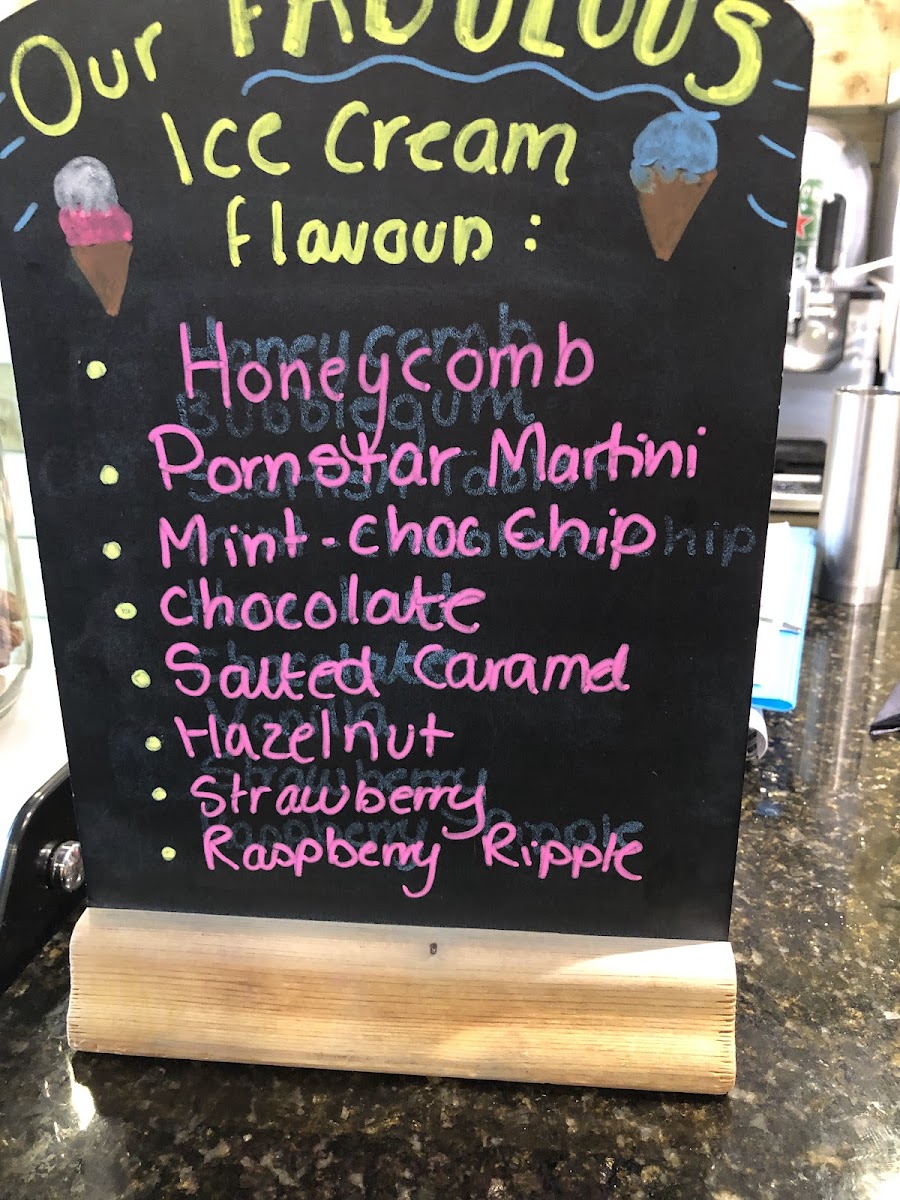 Our FABULOUS
Ice Cream
flavours :
Honeycomb
Pornstar Martini
Mint-choc Chip
Chocolate
Salted Caramel
Hazelnut
Strawberry
Raspberry Ripple